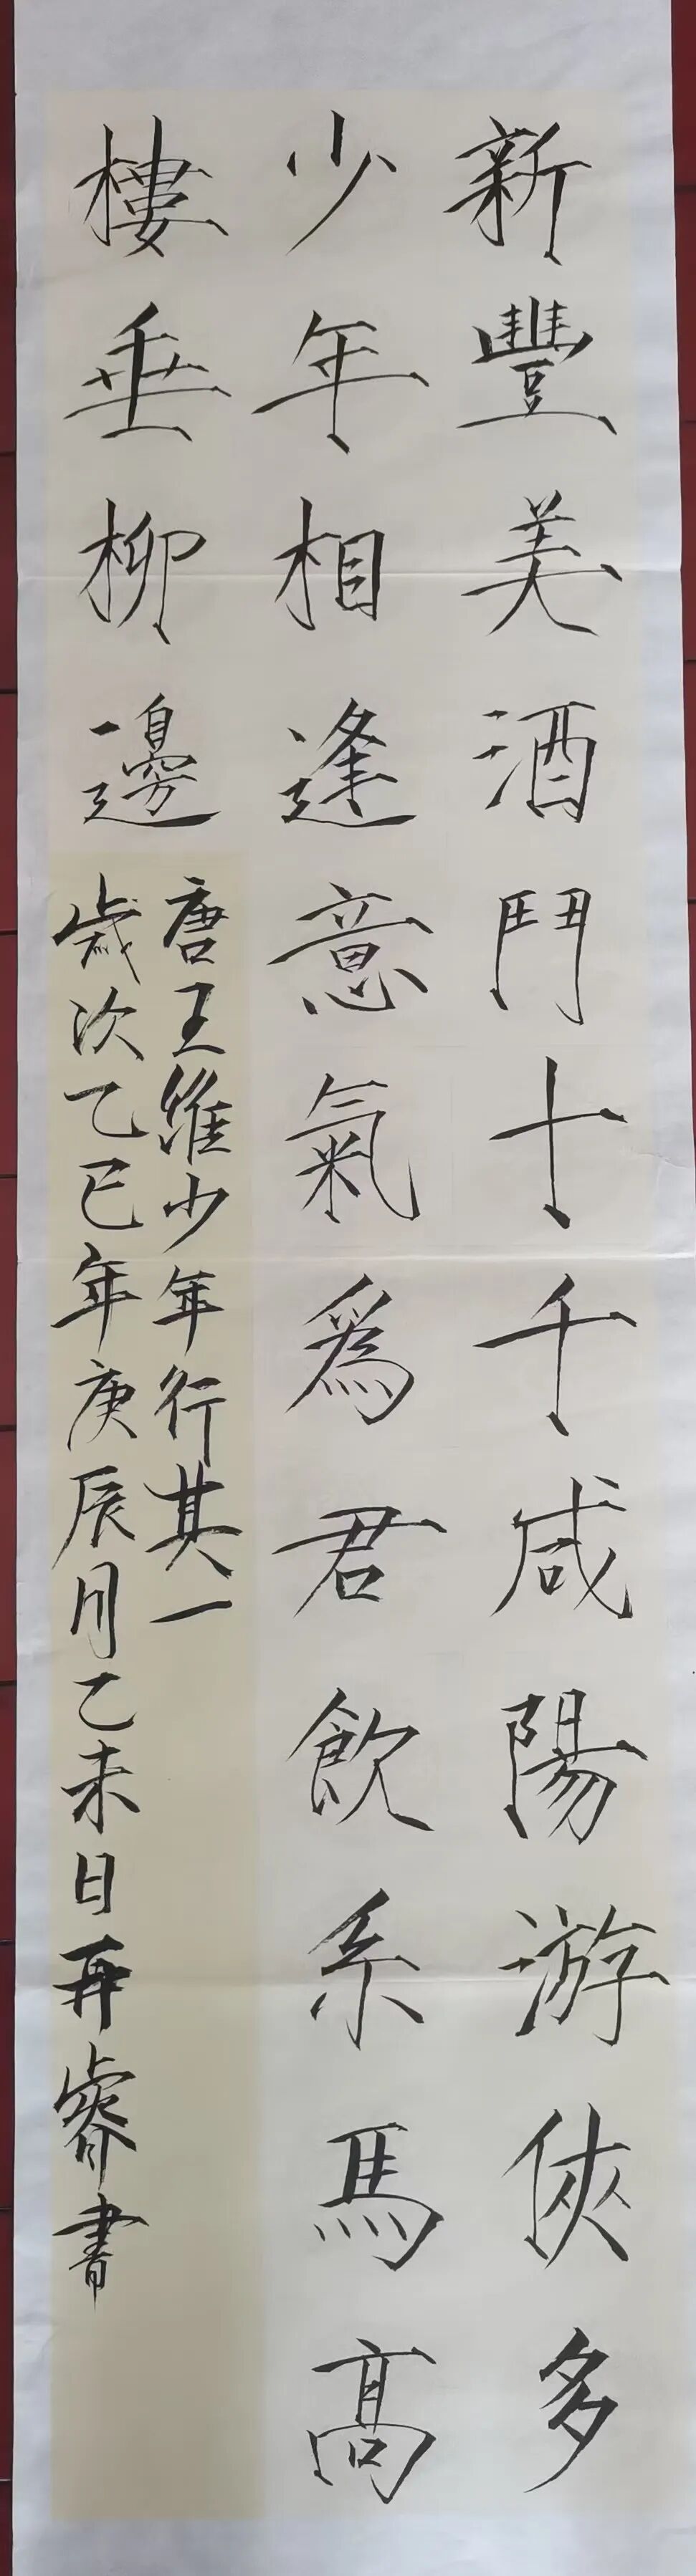 新豐美酒鬥十千咸陽游俠多
少年相逢意氣爲君飲系馬高
樓垂柳邊
唐王維少年行其一
歲次乙巳年庚辰月乙未日再睿書